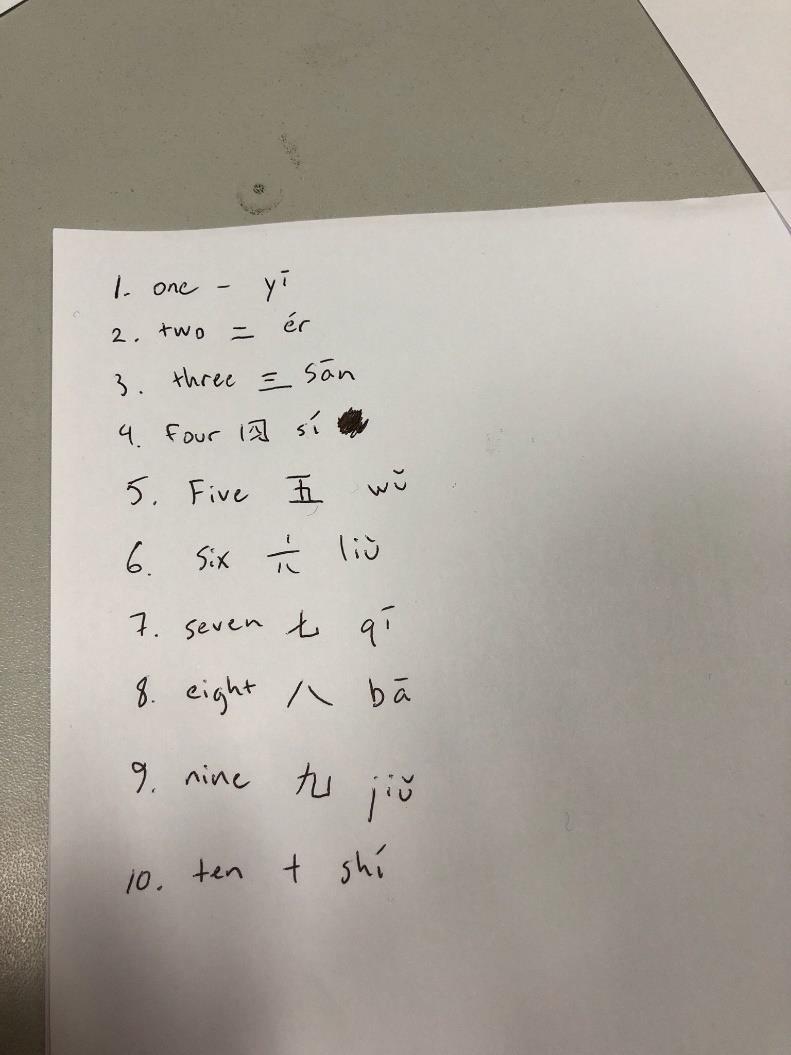 1. one 一 yī
2. two 二 ér
3. three 三 sān
4. Four 四 sí
5. Five 五 wǔ
6. six 六 liù
7. seven 七 qī
8. eight 八 bā
9. nine 九 jiǔ
10. ten 十 shí